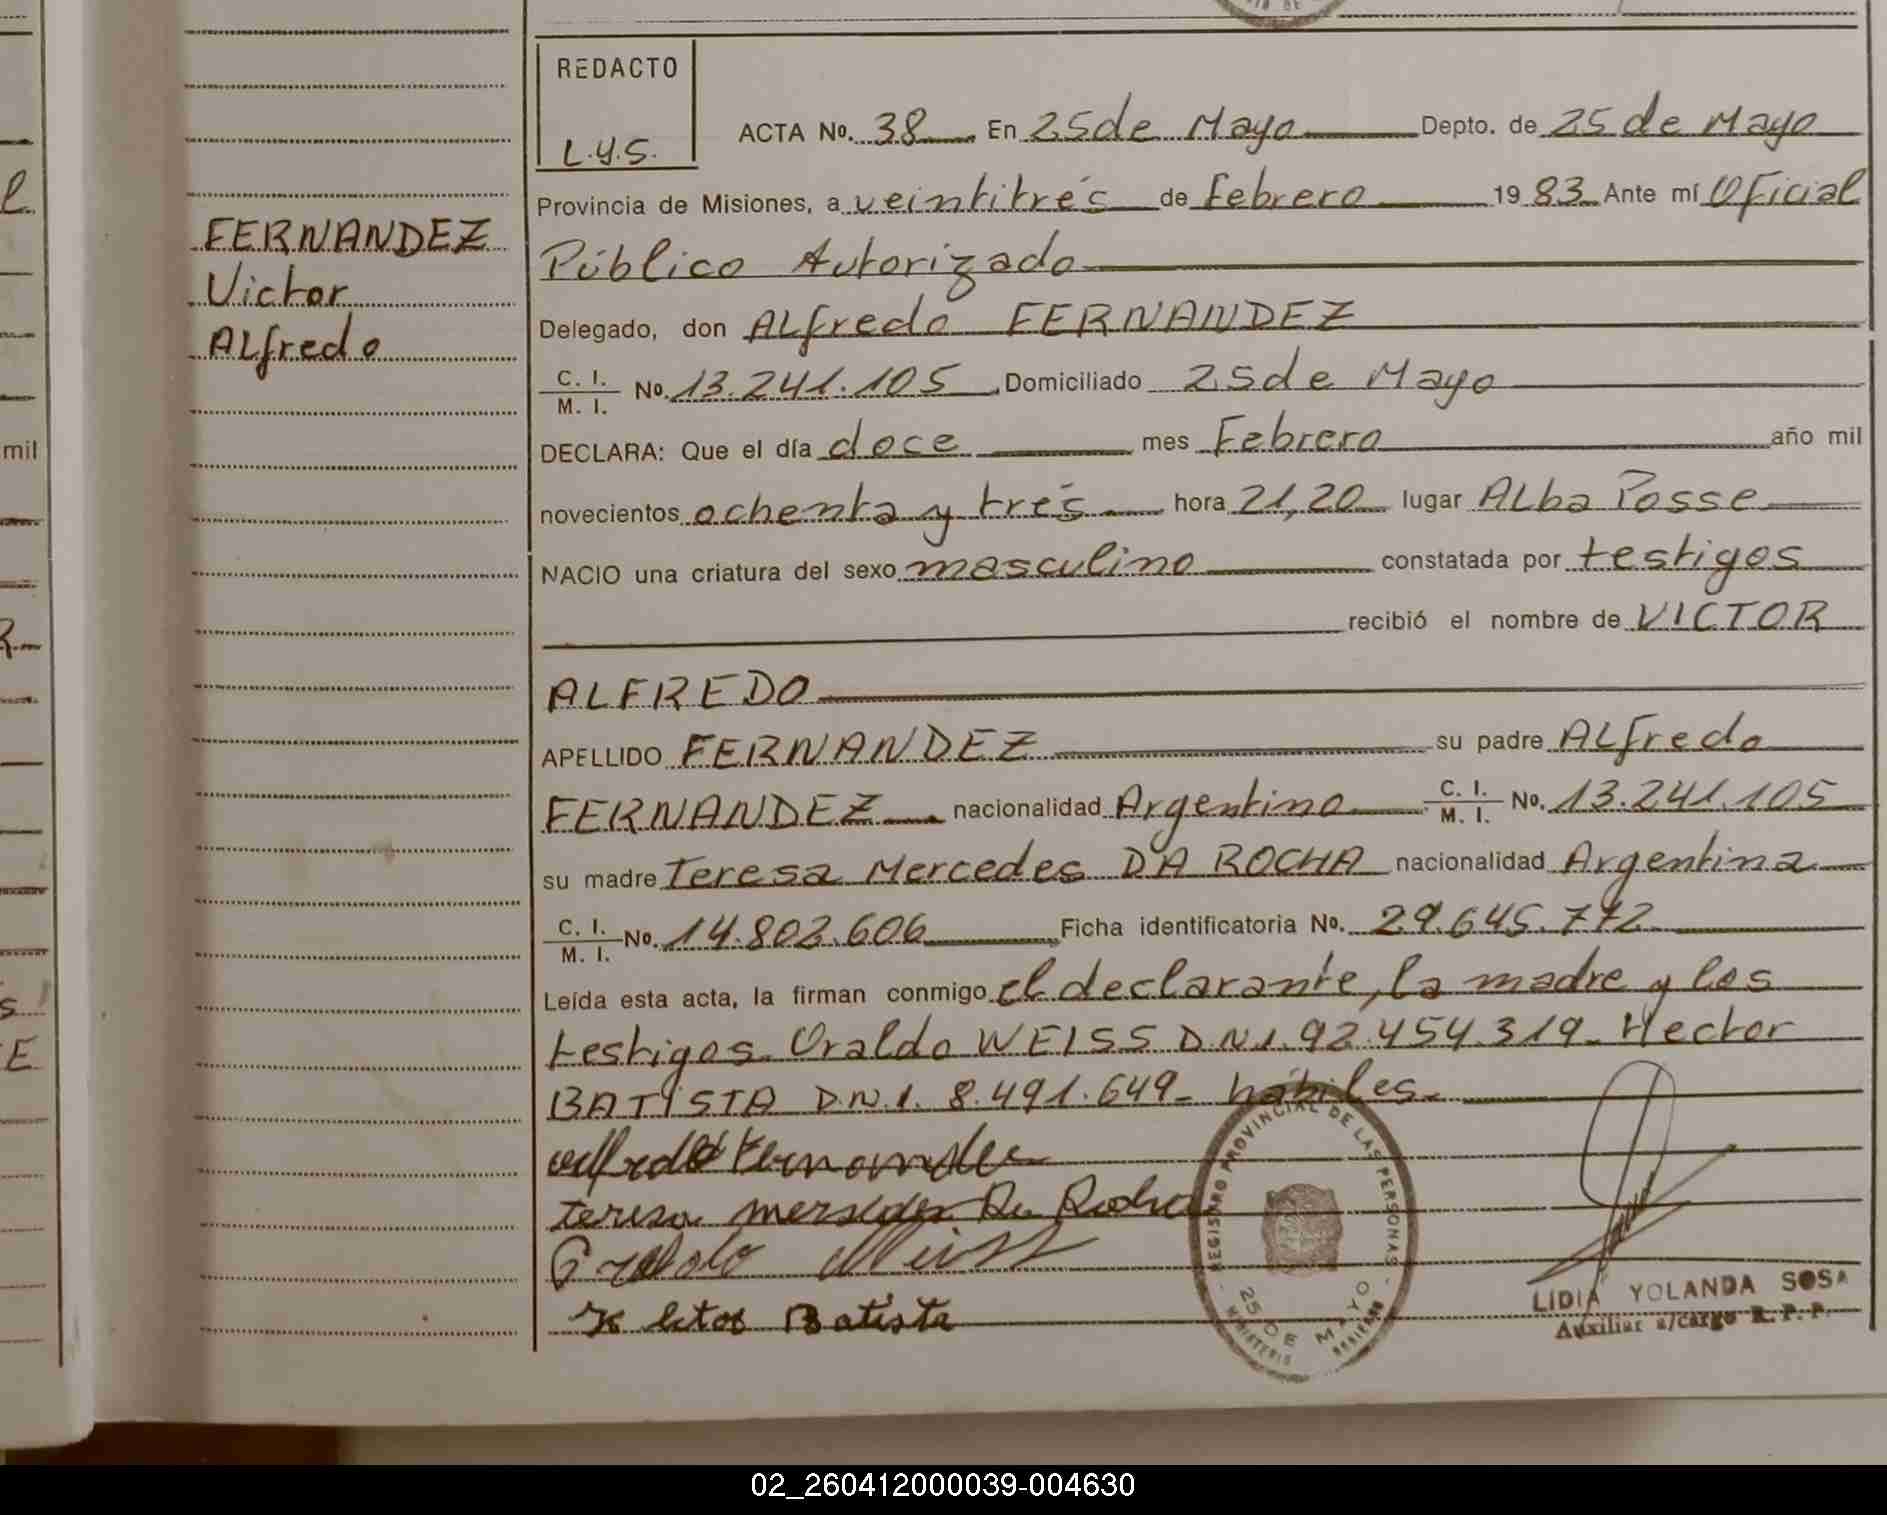 REDACTO
L.Y.S.
ACTA No. 38 En 25 de Mayo Depto. de 25 de Mayo
Provincia de Misiones, a veintitrés de Febrero 1983 Ante mí Oficial
Público Autorizado
Delegado, don Alfredo FERNANDEZ
C. I. / M. I. No. 13.241.105 Domiciliado 25 de Mayo
DECLARA: Que el día doce mes Febrero año mil
novecientos ochenta y trés hora 21,20 lugar Alba Posse
NACIO una criatura del sexo masculino constatada por testigos
recibió el nombre de VICTOR
ALFREDO
APELLIDO FERNANDEZ su padre Alfredo
FERNANDEZ nacionalidad Argentino C. I. / M. I. No. 13.241.105
su madre Teresa Mercedes DA ROCHA nacionalidad Argentina
C. I. / M. I. No. 14.802.606 Ficha identificatoria No. 29.645.772
Leída esta acta, la firman conmigo el declarante, la madre y los
testigos Oraldo WEISS D.N.I. 92.454.319- Hector
BATISTA D.N.I. 8.491.649- hábiles-
FERNANDEZ
Victor
Alfredo
Alfredo Fernandez
teresa mersedes Da Rocha
Oraldo Weiss
Hector Batista
REGISTRO PROVINCIAL DE LAS PERSONAS
25 DE MAYO
MINISTERIO
LIDIA YOLANDA SOSA
Auxiliar a/cargo R. P. P.
mil
E
02_260412000039-004630